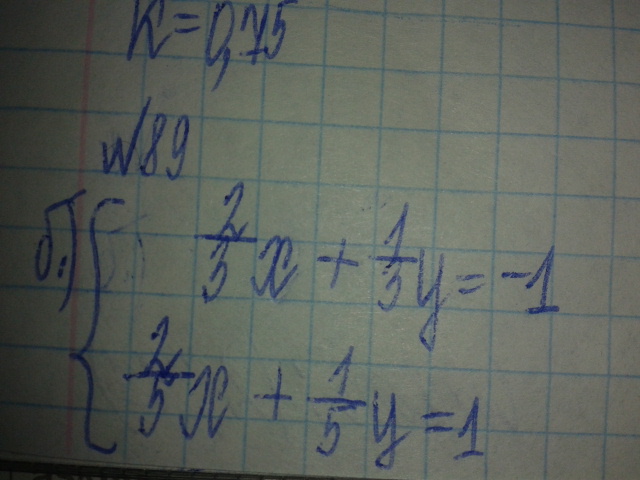 K=0,75
№89
б.) { 2/3 x + 1/3 y = -1
2/5 x + 1/5 y = 1